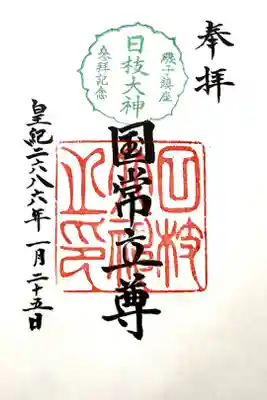 奉拝
磯子鎮座
日枝大神
參拝記念
国常立尊
日枝
之印
皇紀二六八六年一月二十五日